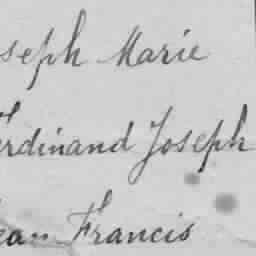 seph Marie
erdinand Joseph
ean Francis